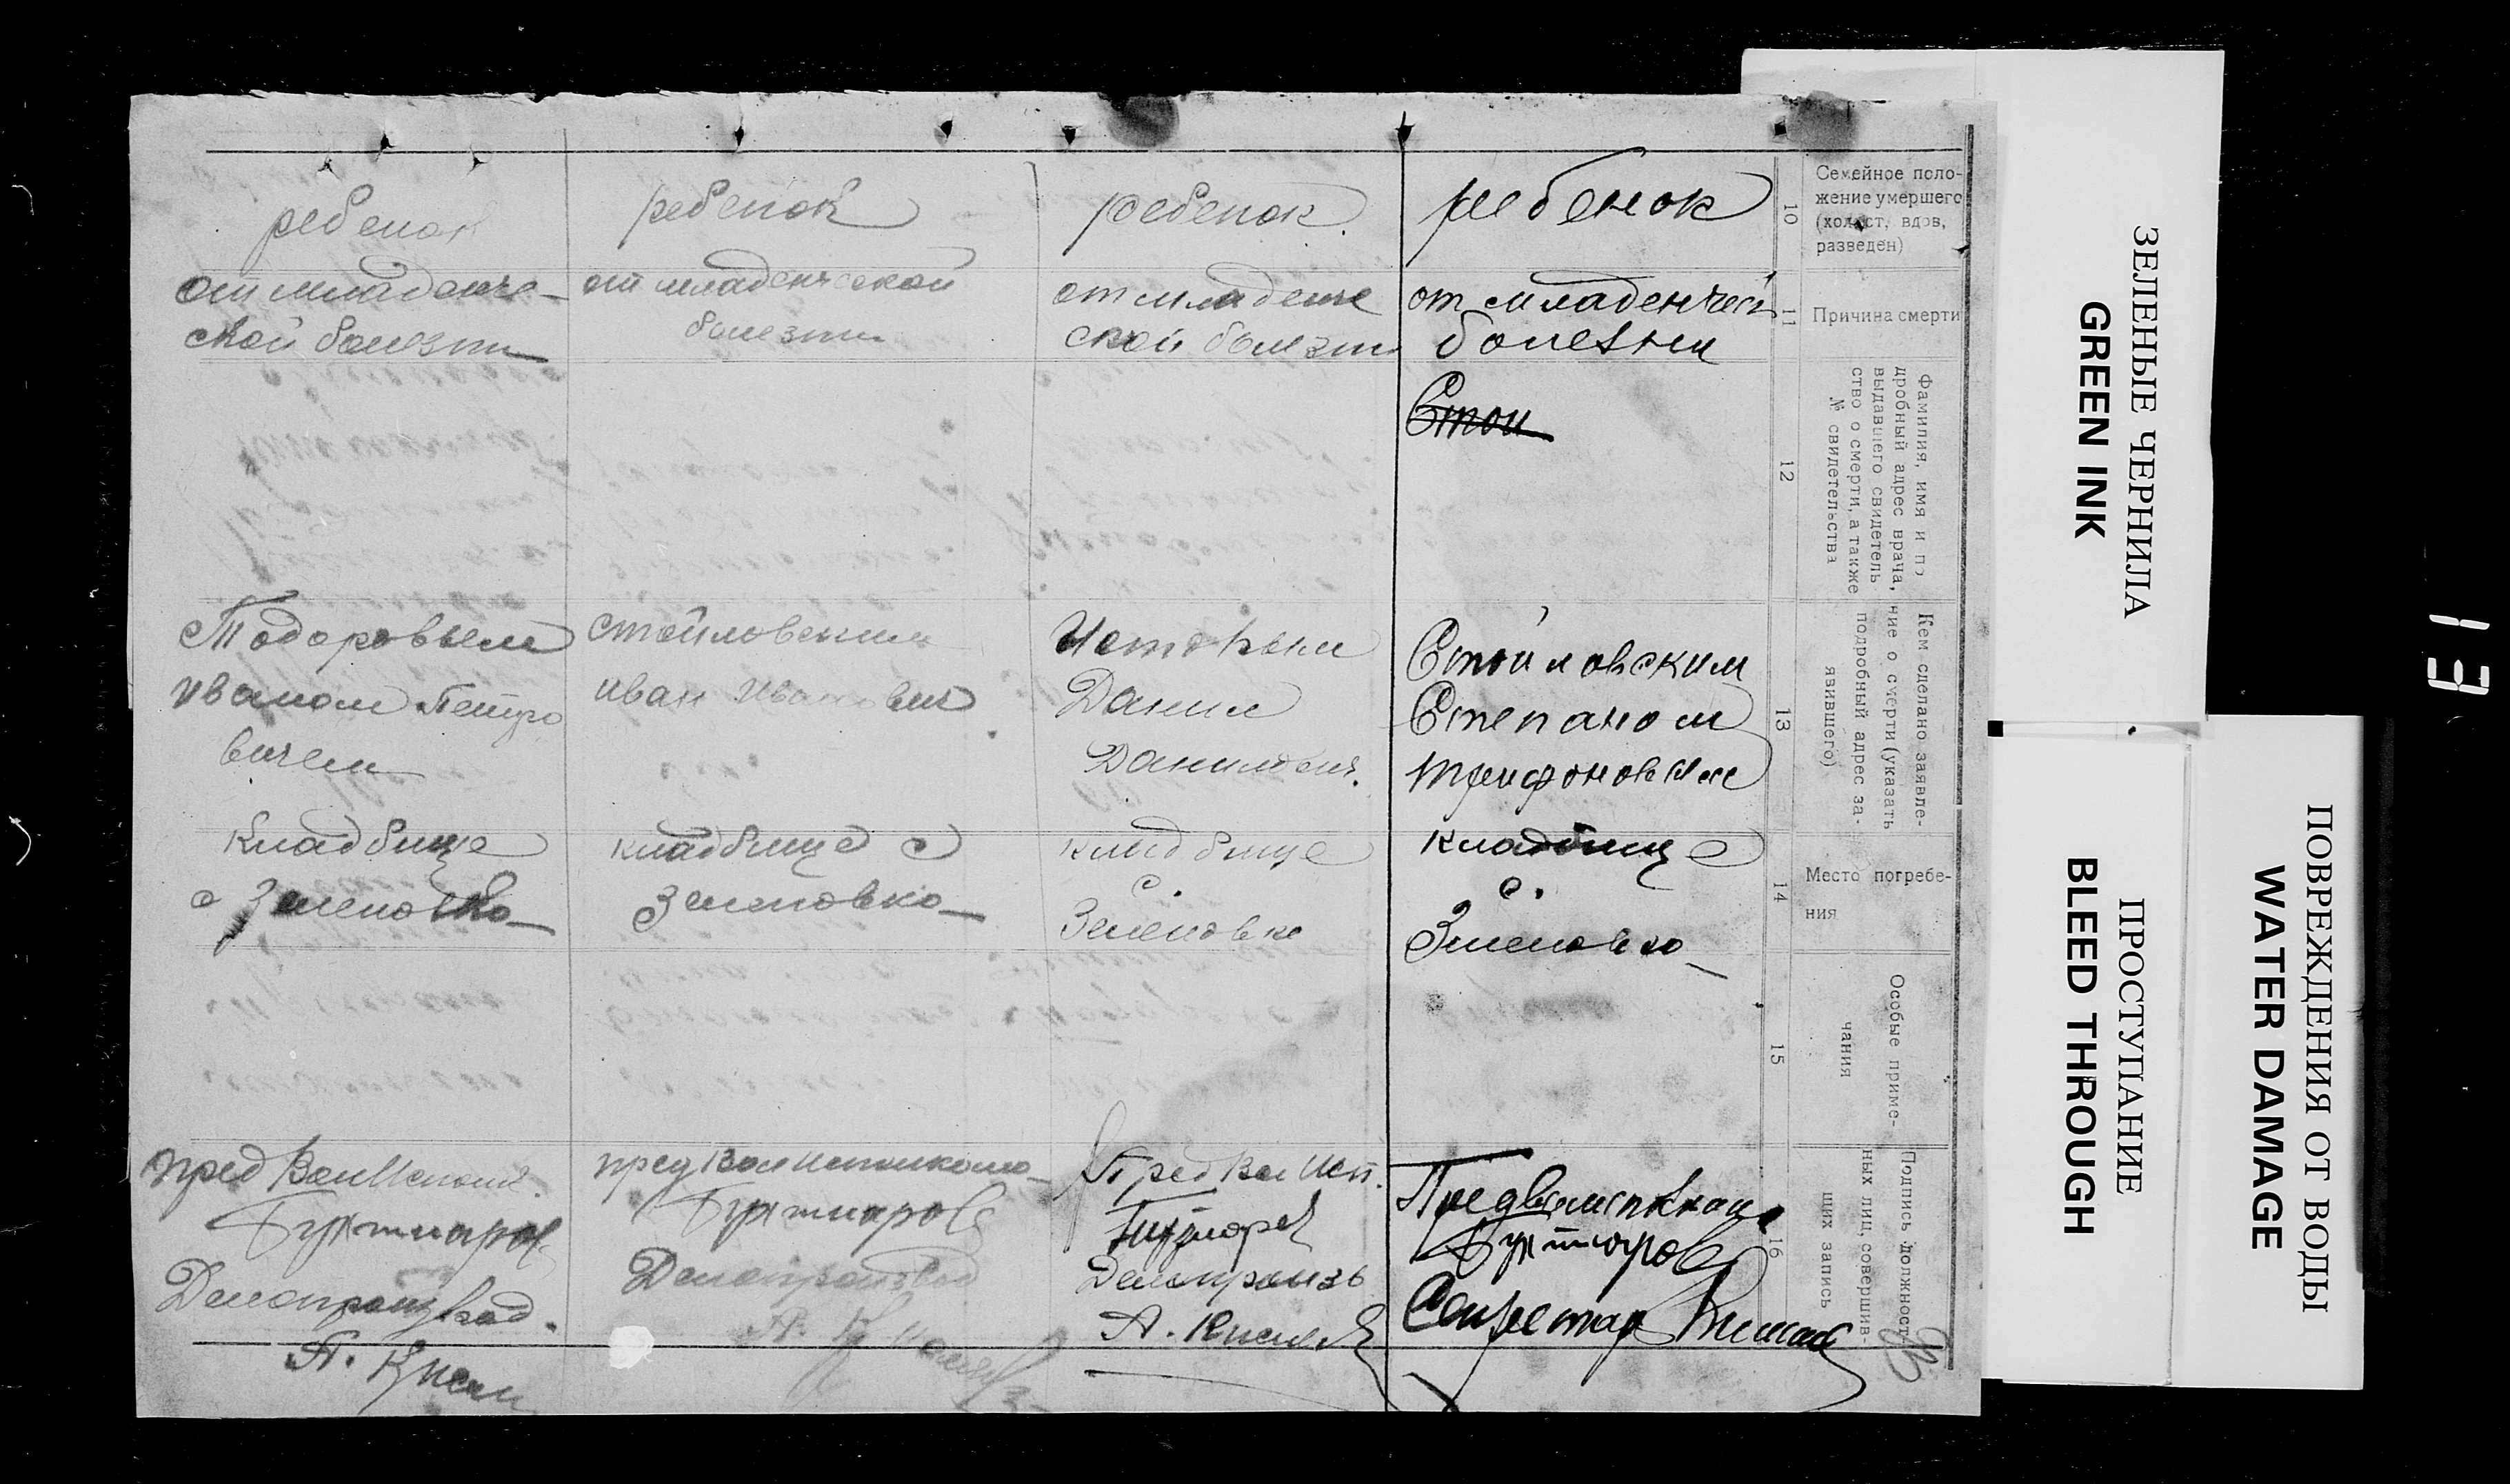 ребенок
ребенок
ребенок
ребенок
10
Семейное поло-
жение умершего
(холост, вдов,
разведен)
от младенче-
ской болезни
от младенческой
болезни
от младенче
ской болезни
от младенчей
болезни
11
Причина смерти
Стои
12
Фамилия, имя и по
дробный адрес врача,
выдавшего свидетель
ство о смерти, а также
№ свидетельства
Тодоровым
Иваном Петро
вичем
Стойловским
Иван Иванович
Данил
Данилович.
Стойловским
Степаном
Трифоновым
13
Кем сделано заявле-
ние о смерти (указать
подробный адрес за-
явившего)
кладбище
с Зеленовка
кладбище с
Зеленовка
кладбище
с.
Зеленовка
кладбище
с.
Зеленовка
14
Место погребе-
ния
15
Особые приме-
чания
пред
Делопроизвод.
А.
пред
Делопроизвод
А.
Пред Вол Исп.
Делопроизв
А. Киселев
Секретар
16
Подпись должност-
ных лиц, совершив-
ших запись
ЗЕЛЕНЫЕ ЧЕРНИЛА
GREEN INK
ПРОСТУПАНИЕ
BLEED THROUGH
ПОВРЕЖДЕНИЯ ОТ ВОДЫ
WATER DAMAGE
E1